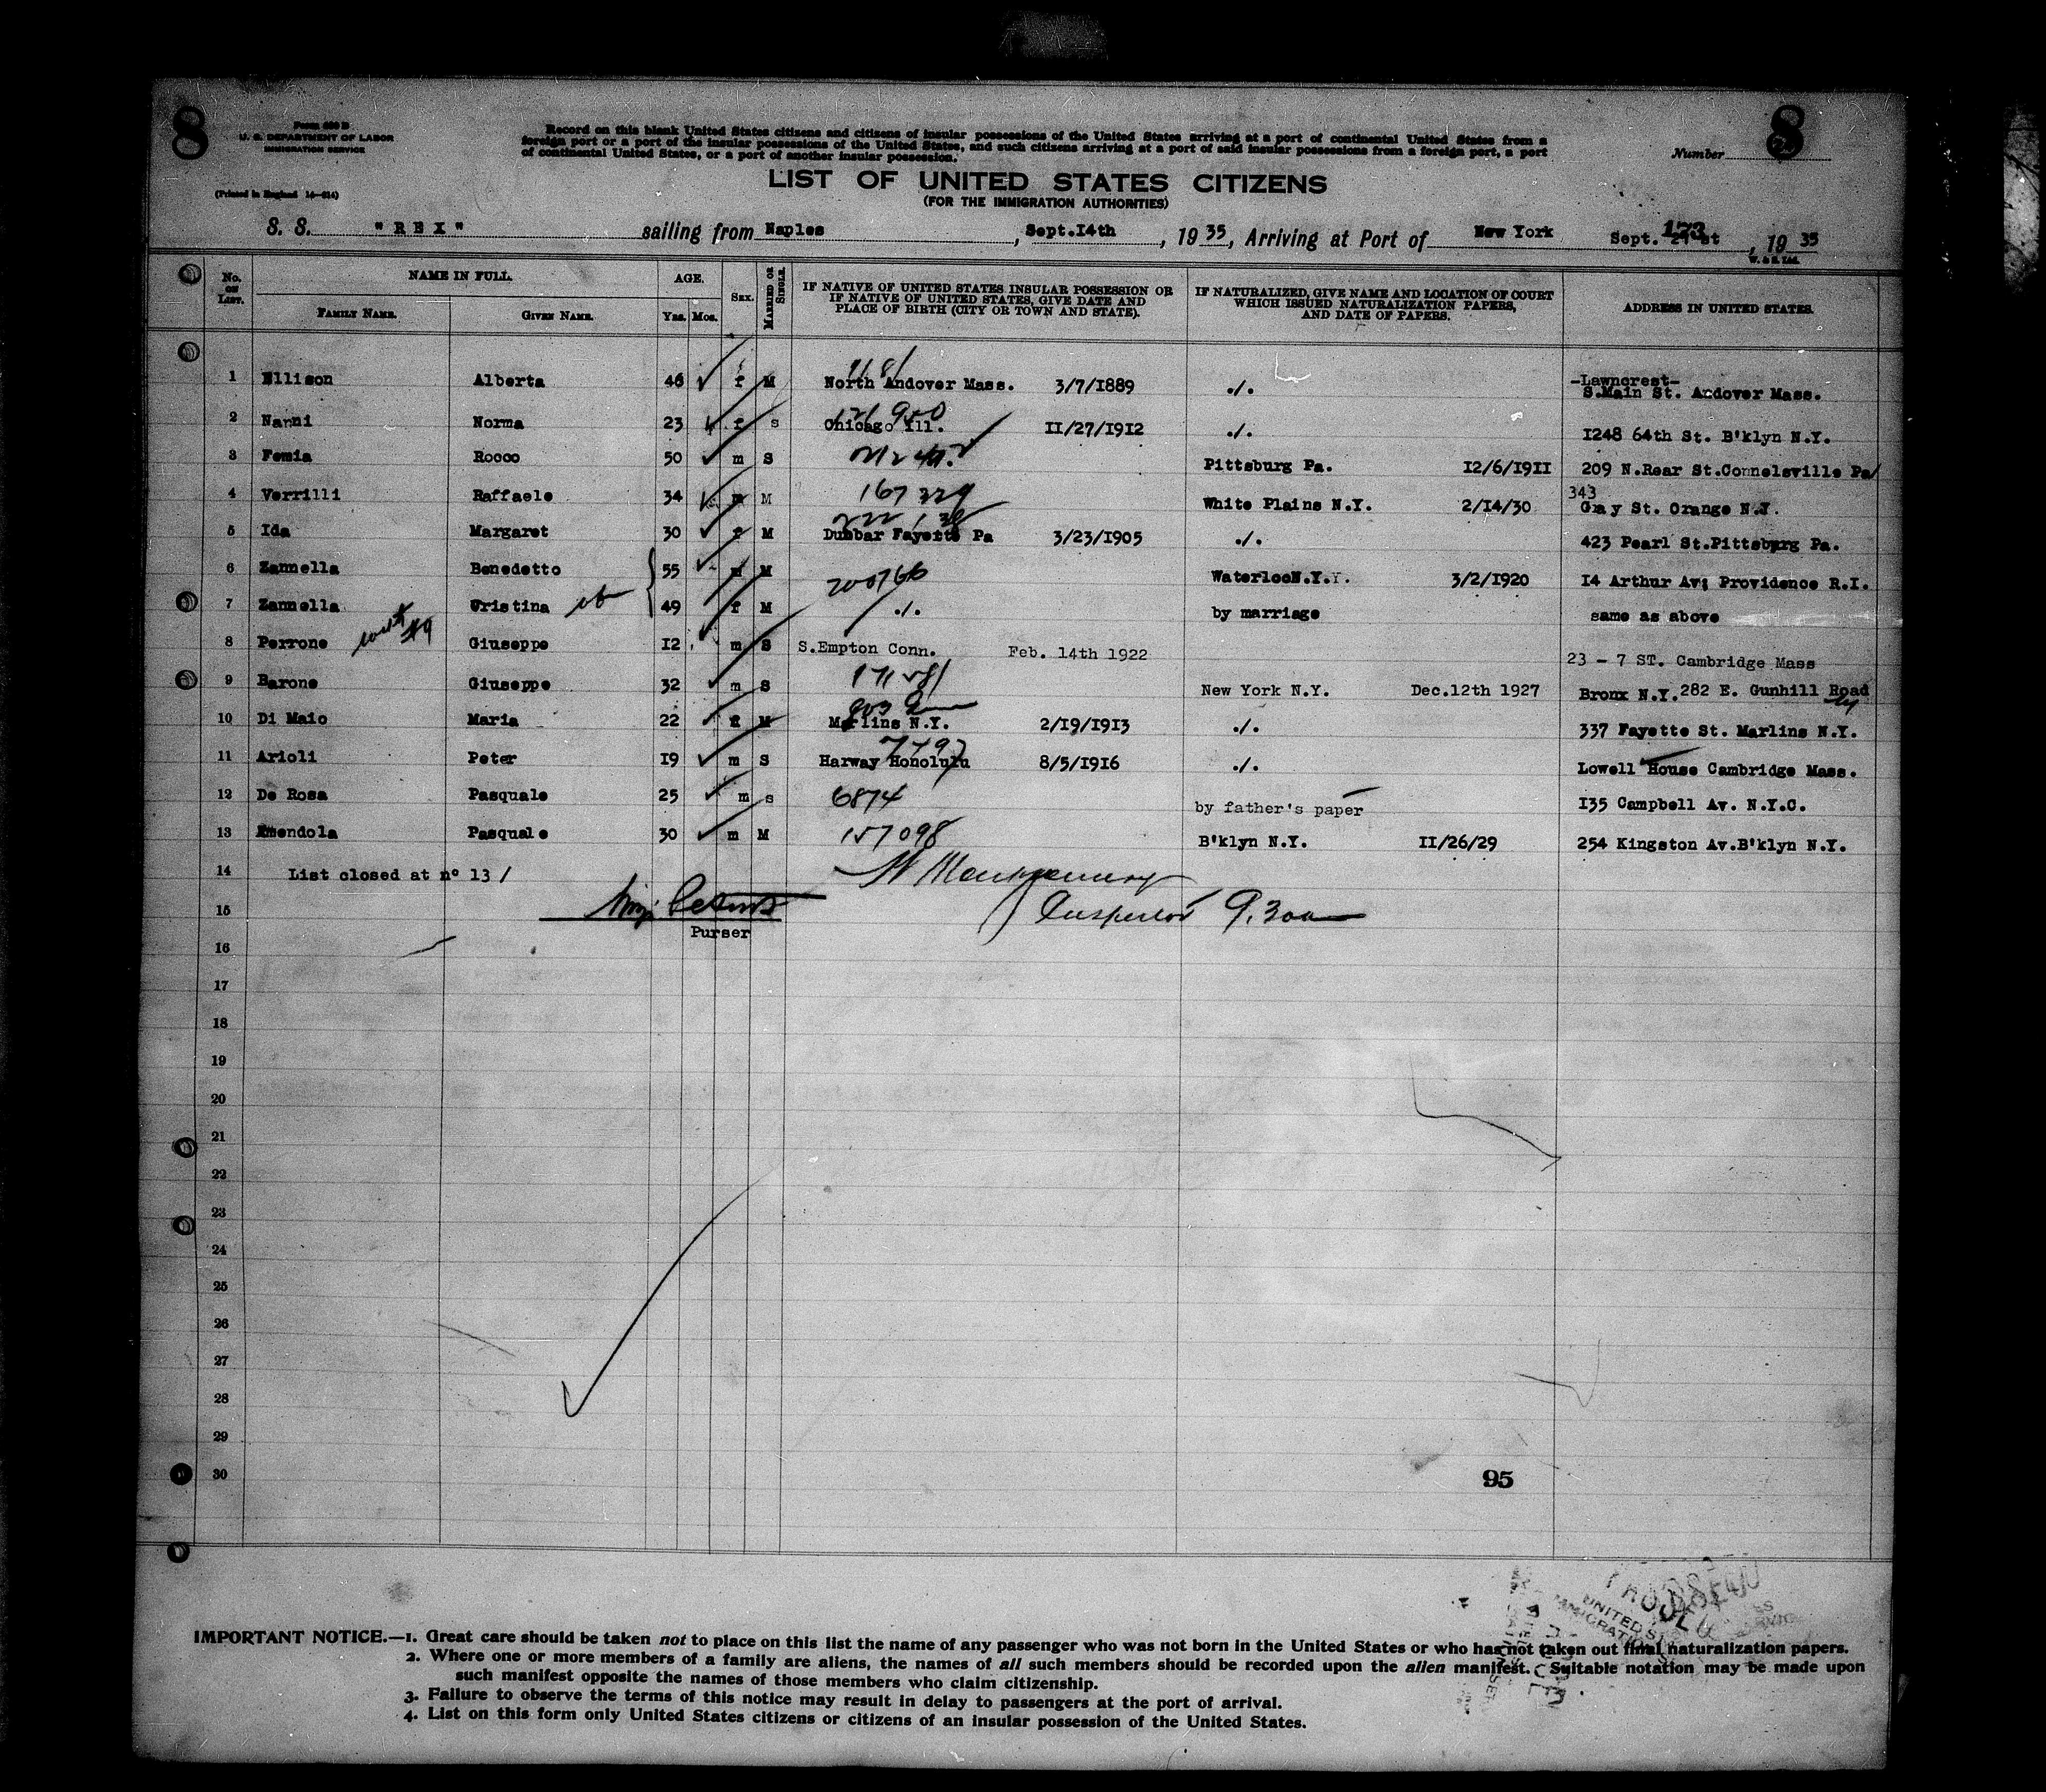 8
Form 630 B
U. S. DEPARTMENT OF LABOR
IMMIGRATION SERVICE
(Printed in England 14—814)
Record on this blank United States citizens and citizens of insular possessions of the United States arriving at a port of continental United States from a
foreign port or a port of the insular possessions of the United States, and such citizens arriving at a port of said insular possessions from a foreign port, a port
of continental United States, or a port of another insular possession.
Number 8
LIST OF UNITED STATES CITIZENS
(FOR THE IMMIGRATION AUTHORITIES)
S. S. "REX" sailing from Naples, Sept.14th, 1935, Arriving at Port of New York Sept. 21st, 1935
173
W. & S. Ltd.
No. ON LIST. NAME IN FULL. AGE. SEX. MARRIED OR SINGLE. IF NATIVE OF UNITED STATES INSULAR POSSESSION OR IF NATIVE OF UNITED STATES, GIVE DATE AND PLACE OF BIRTH (CITY OR TOWN AND STATE). IF NATURALIZED, GIVE NAME AND LOCATION OF COURT WHICH ISSUED NATURALIZATION PAPERS, AND DATE OF PAPERS. ADDRESS IN UNITED STATES.
FAMILY NAME. GIVEN NAME. YRS. MOS.
1 Ellison Alberta 46 f M North Andover Mass. 3/7/1889 ./. -Lawncrest- S.Main St. Andover Mass.
2 Nanni Norma 23 f s Chicago Ill. 11/27/1912 ./. 1248 64th St. B'klyn N.Y.
121950
3 Femia Rocco 50 m S Pittsburg Pa. 12/6/1911 209 N.Rear St.Connelsville Pa
4 Verrilli Raffaele 34 m M 167229 White Plains N.Y. 2/14/30 343 Gray St. Orange N.J.
5 Ida Margaret 30 f M Dunbar Fayette Pa 3/23/1905 ./. 423 Pearl St.Pittsburg Pa.
6 Zannella Benedetto 55 m M 200766 Waterloo N.Y. 3/2/1920 14 Arthur Av; Providence R.I.
7 Zannella Cristina 49 f M ./. by marriage same as above
8 Perrone Giuseppe 12 m S S.Empton Conn. Feb. 14th 1922 23 - 7 ST. Cambridge Mass
9 Barone Giuseppe 32 m S New York N.Y. Dec.12th 1927 Bronx N.Y. 282 E. Gunhill Road
10 Di Maio Maria 22 f M Marlins N.Y. 2/19/1913 ./. 337 Fayette St. Marlins N.Y.
11 Arioli Peter 19 m S Harway Honolulu 8/5/1916 ./. Lowell House Cambridge Mass.
7797
12 De Rosa Pasquale 25 m s 6874 by father's paper 135 Campbell Av. N.Y.C.
13 Amendola Pasquale 30 m M 157098 B'klyn N.Y. 11/26/29 254 Kingston Av.B'klyn N.Y.
14 List closed at n° 13 /
15 Inspector 9.30am
Purser
16
17
18
19
20
21
22
23
24
25
26
27
28
29
30
95
UNITED S
IMMIGRATION
IMPORTANT NOTICE.—1. Great care should be taken not to place on this list the name of any passenger who was not born in the United States or who has not taken out final naturalization papers.
2. Where one or more members of a family are aliens, the names of all such members should be recorded upon the alien manifest. Suitable notation may be made upon
such manifest opposite the names of those members who claim citizenship.
3. Failure to observe the terms of this notice may result in delay to passengers at the port of arrival.
4. List on this form only United States citizens or citizens of an insular possession of the United States.